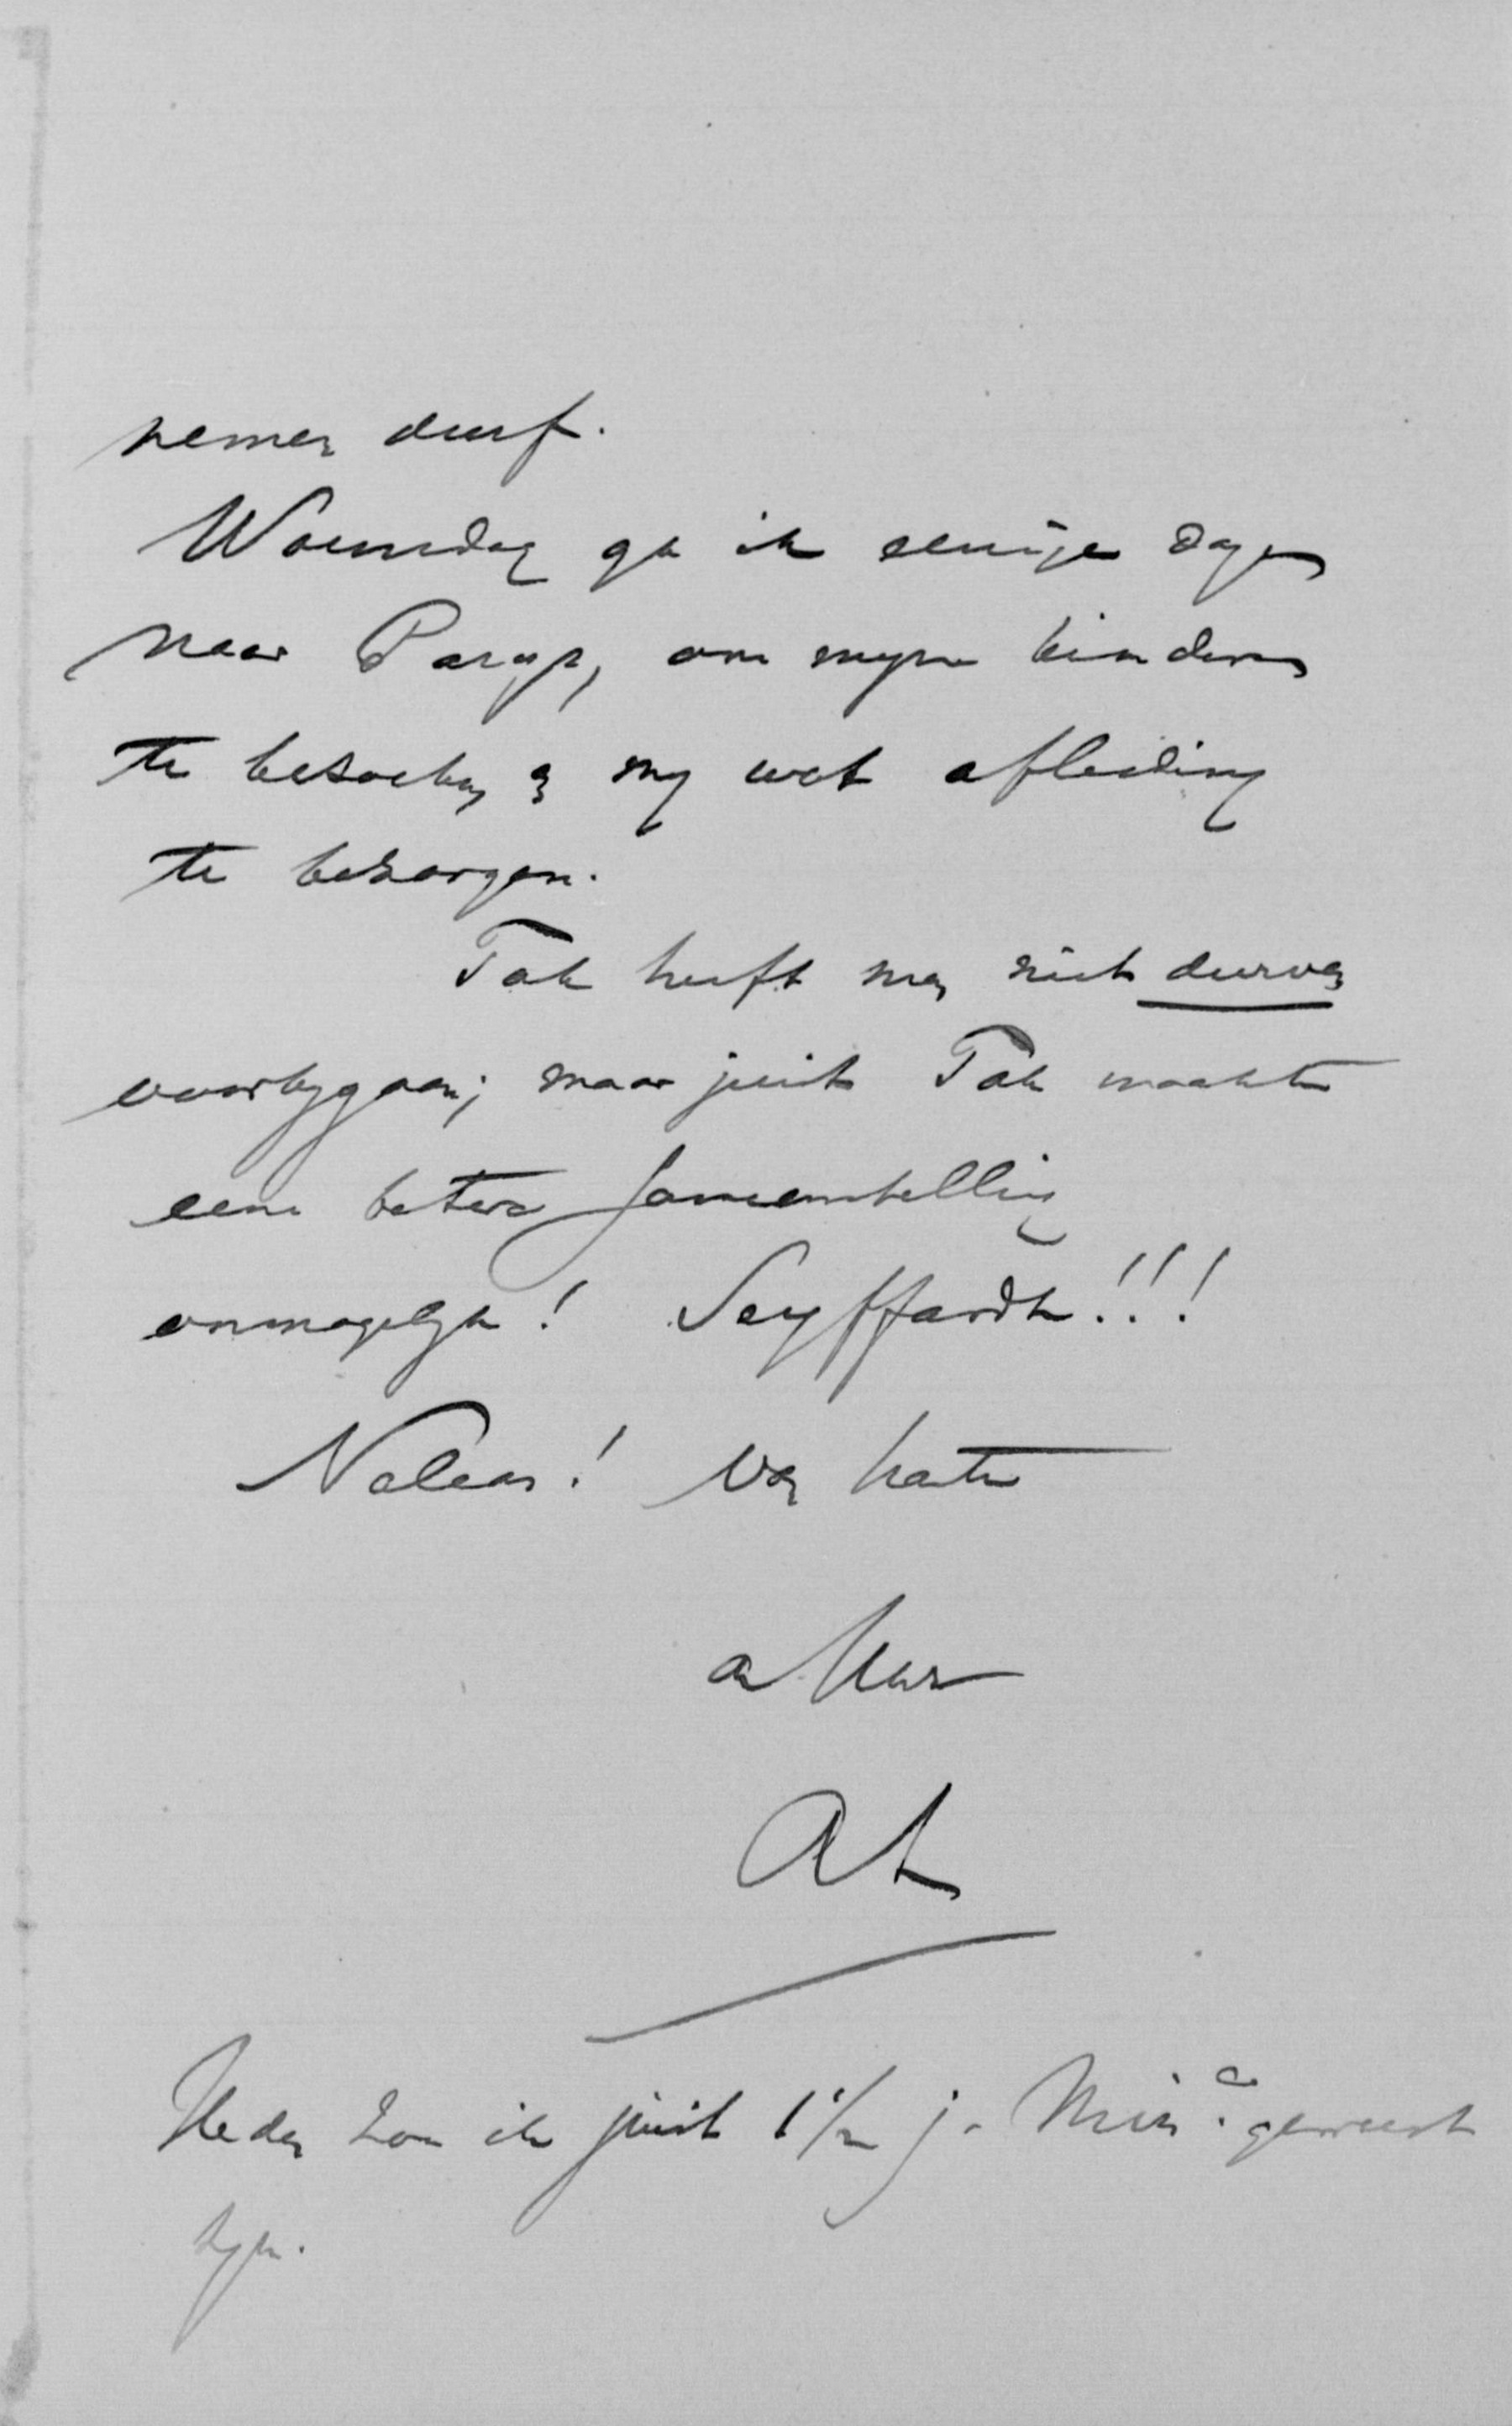 nemen durf.
Woensdag ga ik eenige dagen
naar Parijs, om mijne kinderen
te bezoeken en mij wat afleiding
te bezorgen.
Tak heeft men niet durven
voorbijgaan; maar juist Tak maakte
eene betere samenstelling
onmogelijk! Seyffardt!!!
Nolens! Van harte
a Uwe
Heden zou ik juist 1½ j. Min. geweest
zijn.